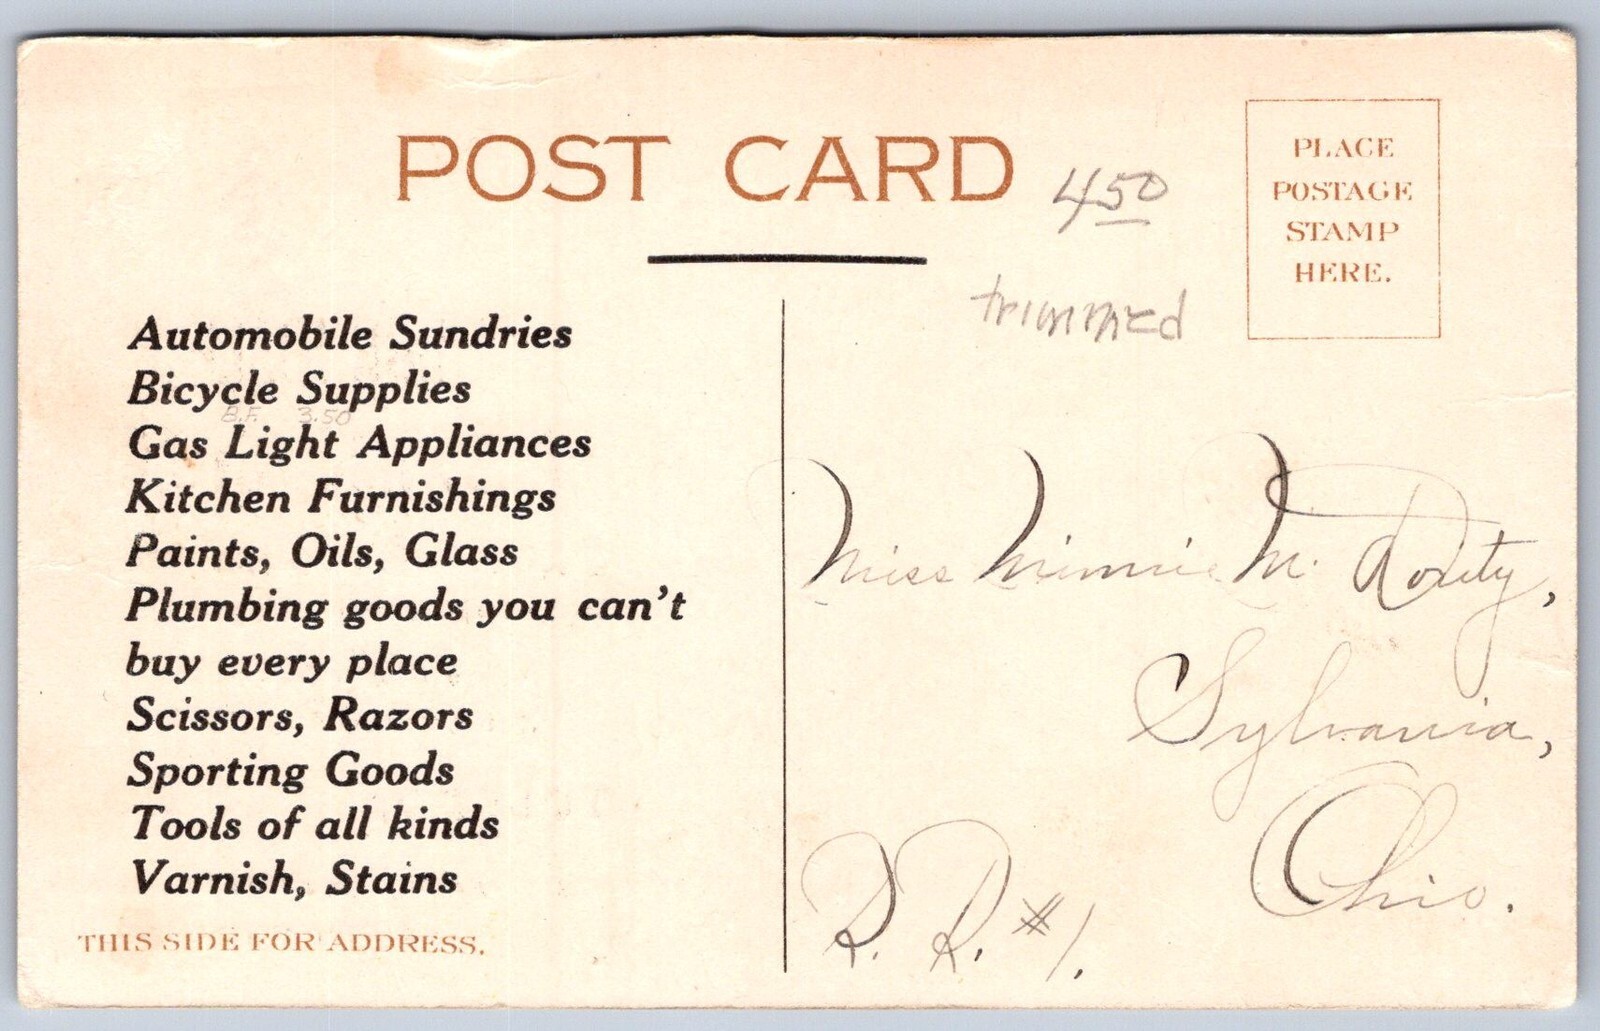 POST CARD
450
PLACE
POSTAGE
STAMP
HERE.
trimmed
Automobile Sundries
Bicycle Supplies
B.F. 3.50
Gas Light Appliances
Kitchen Furnishings
Paints, Oils, Glass
Plumbing goods you can't
buy every place
Scissors, Razors
Sporting Goods
Tools of all kinds
Varnish, Stains
THIS SIDE FOR ADDRESS.
Miss Minnie M. Douty,
Sylvania,
Ohio.
R. R. #1.